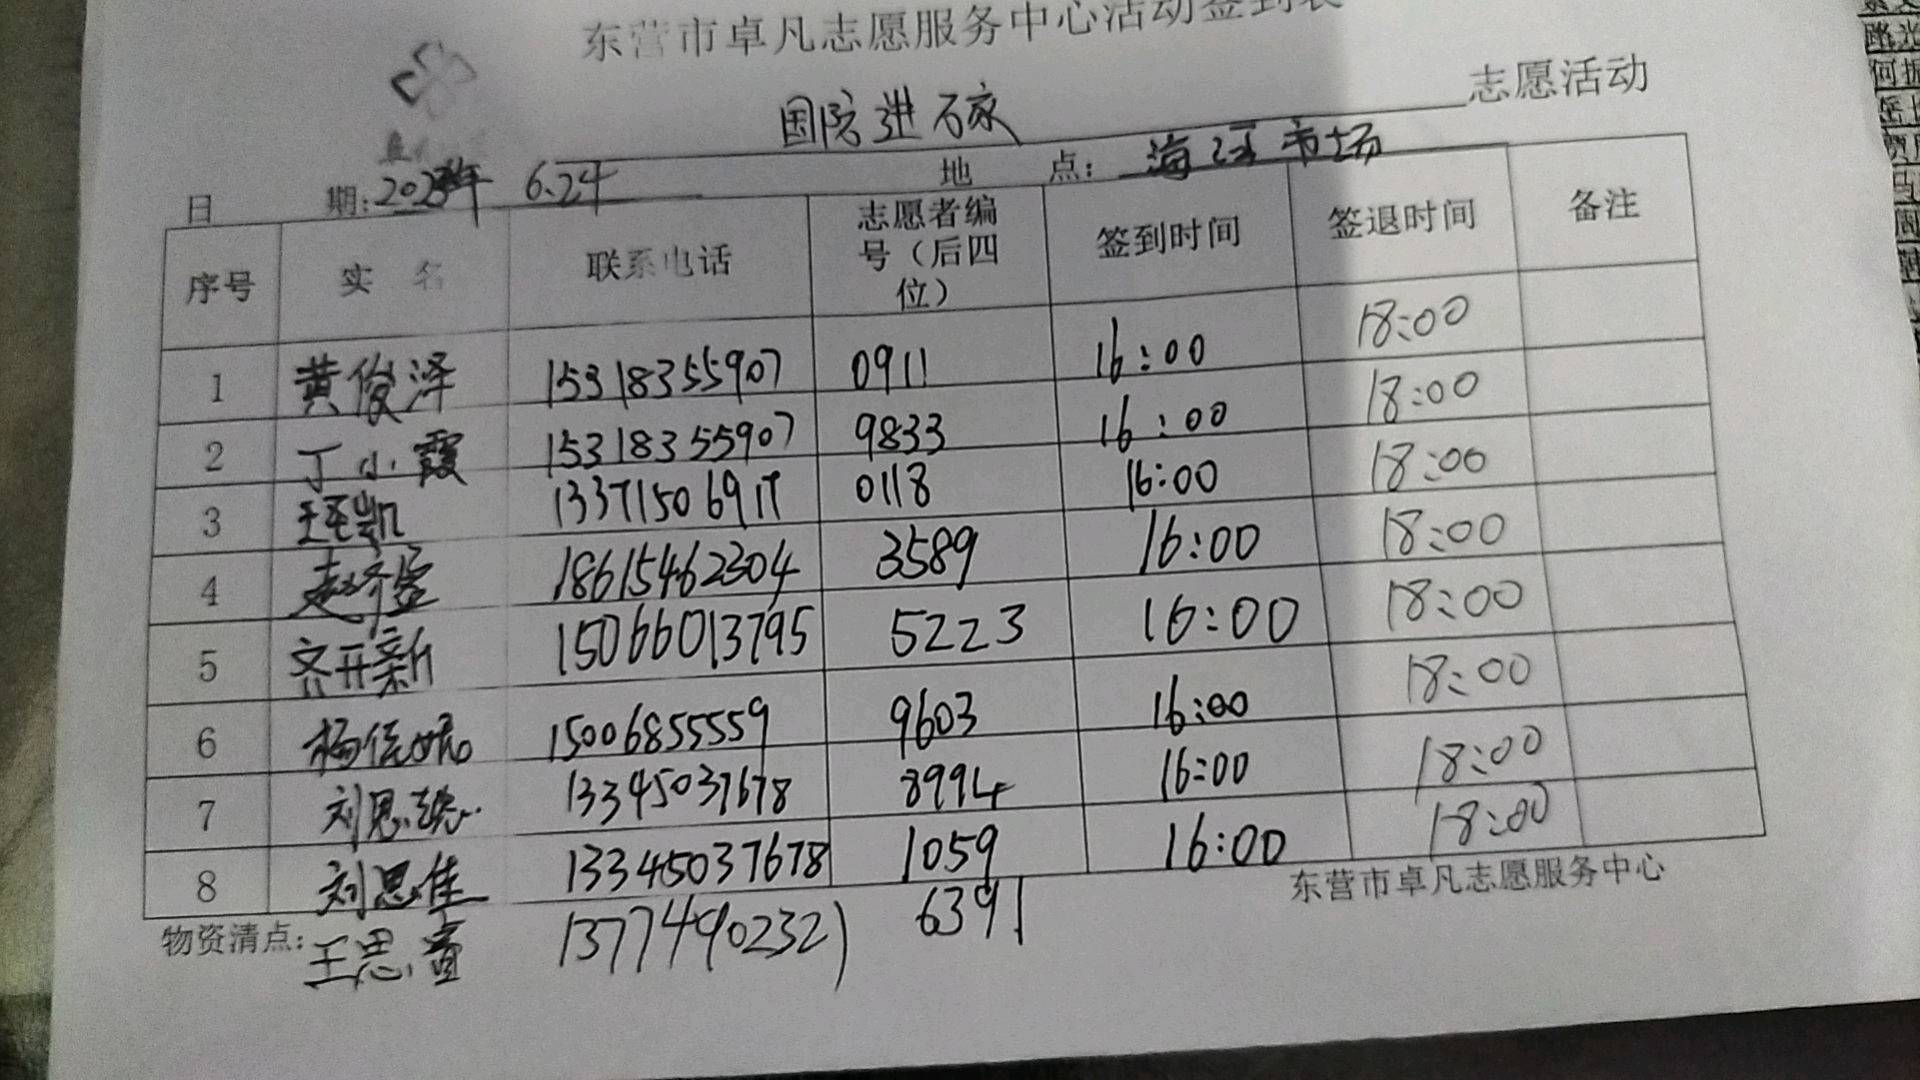 东营市卓凡志愿服务中心活动签到表
国院进万家 志愿活动
日 期: 6.24 地 点: 海河市场
序号 实 名 联系电话 志愿者编号（后四位） 签到时间 签退时间 备注
1 黄俊泽 15318355907 0911 16:00 18:00
2 丁小霞 15318355907 9833 16:00 18:00
3 13371506917 0118 16:00 18:00
4 18615462304 3589 16:00 18:00
5 齐开新 15066013795 5223 16:00 18:00
6 15006855559 9603 16:00 18:00
7 刘思 13345037678 8994 16:00 18:00
8 刘思佳 13345037678 1059 16:00 18:00
物资清点: 东营市卓凡志愿服务中心
王思 13774902321 6391